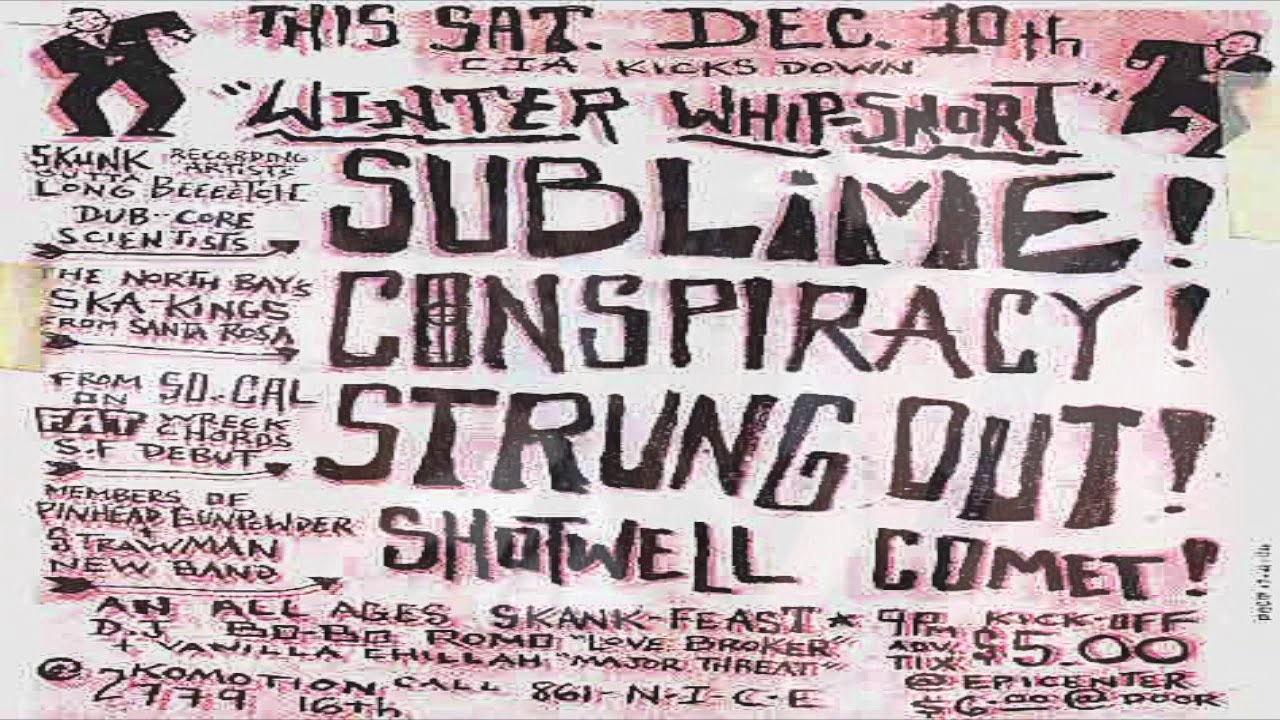 THIS SAT. DEC. 10th
CIA KICKS DOWN
"WINTER WHIP-SNORT"
SKUNK RECORDING ARTISTS
OUTTA
LONG BEEEETCH
DUB-CORE
SCIENTISTS
SUBLIME!
THE NORTH BAY'S
SKA-KINGS
FROM SANTA ROSA
CONSPIRACY!
FROM SO.CAL
ON
FAT WRECK CHORDS
S.F DEBUT
STRUNG OUT!
MEMBERS OF
PINHEAD GUNPOWDER
STRAWMAN
NEW BAND
SHOTWELL COMET!
AN ALL AGES SKANK-FEAST ★ 9PM KICK-OFF
D.J BO-BO ROMO "LOVE BROKER"
+ VANILLA CHILLAH "MAJOR THREAT"
ADV. TIX $5.00
@ EPICENTER
$6.00 @ DOOR
@ KOMOTION CALL 861-N-I-C-E
2779 16th